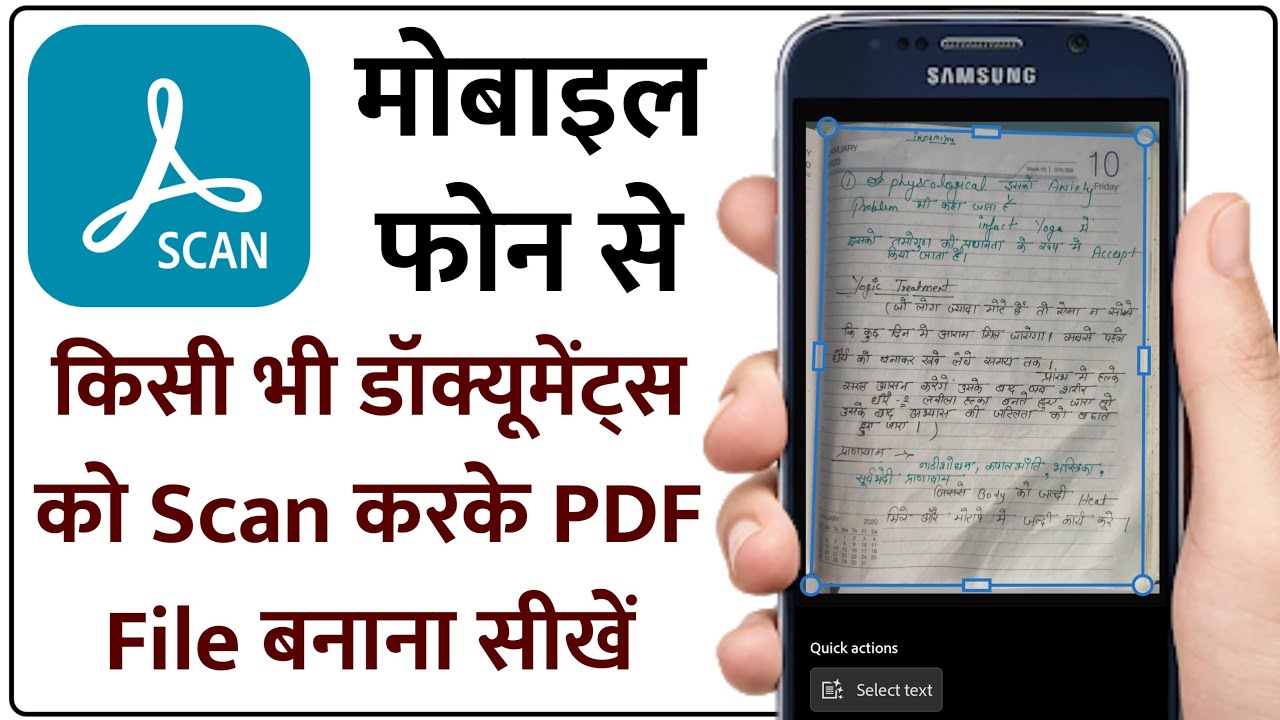 SCAN
मोबाइल
फोन से
किसी भी डॉक्यूमेंट्स
को Scan करके PDF
File बनाना सीखें
SAMSUNG
JANUARY
2020
Week 02 | 010-356
10
Friday
① physcological इसको Anxiety
Problem भी कहा जाता है
infact Yoga में
इसको तमोगुण की प्रधानता के रूप में Accept
किया जाता है।
Yogic Treatment
(जो लोग ज्यादा मोटे हैं तो ऐसा न सोचे
कि कुछ दिन मे आराम मिल जायेगा। सबसे पहले
धैर्य को बनाकर रखे लंबे समय तक।
प्रारंभ मे हल्के
सरल आसन करेंगे उसके बाद जब शरीर
धीरे-२ लचीला हल्का बनाते हुए जाए तो
उसके बाद अभ्यास की जटिलता को बढ़ाते
हुए जाए।)
प्राणायाम →
नाड़ीशोधन, कपालभाँति, भस्त्रिका,
सूर्यभेदी प्राणायाम
जिससे Body को जल्दी Heat
मिले और मोटापे मे जल्दी कार्य करे।
JANUARY 2020
Quick actions
Select text